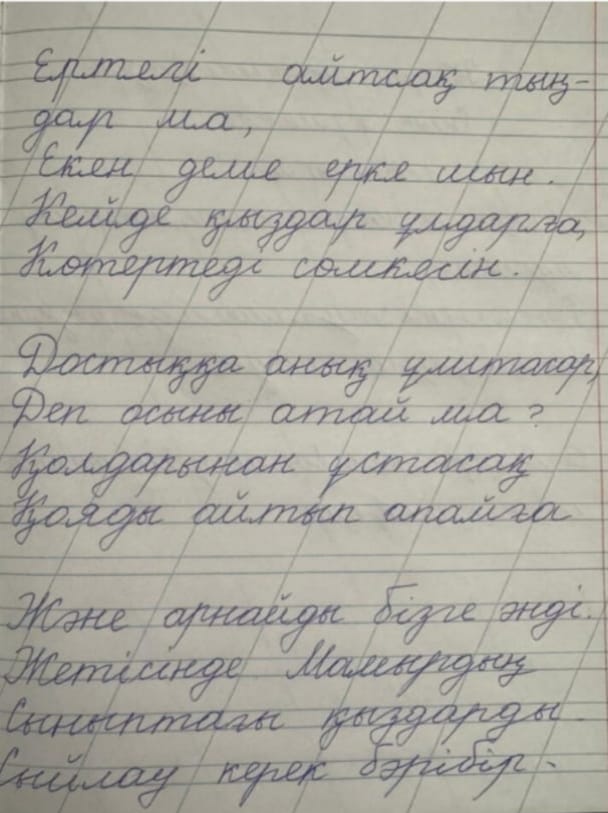 Ертегі айтсақ тың-
дар ма,
Екен деме ерке шын.
Кейде қыздар ұлдарға,
Көтертеді сөмкесін.
Достыққа анық ұмтасар,
Деп осыны атай ма?
Қолдарынан ұстасақ
Қояды айтып апайға
Және арнайды бізге әнді.
Жетісінде Мамырдың
Сыныптағы қыздарды
Сыйлау керек бәрібір.